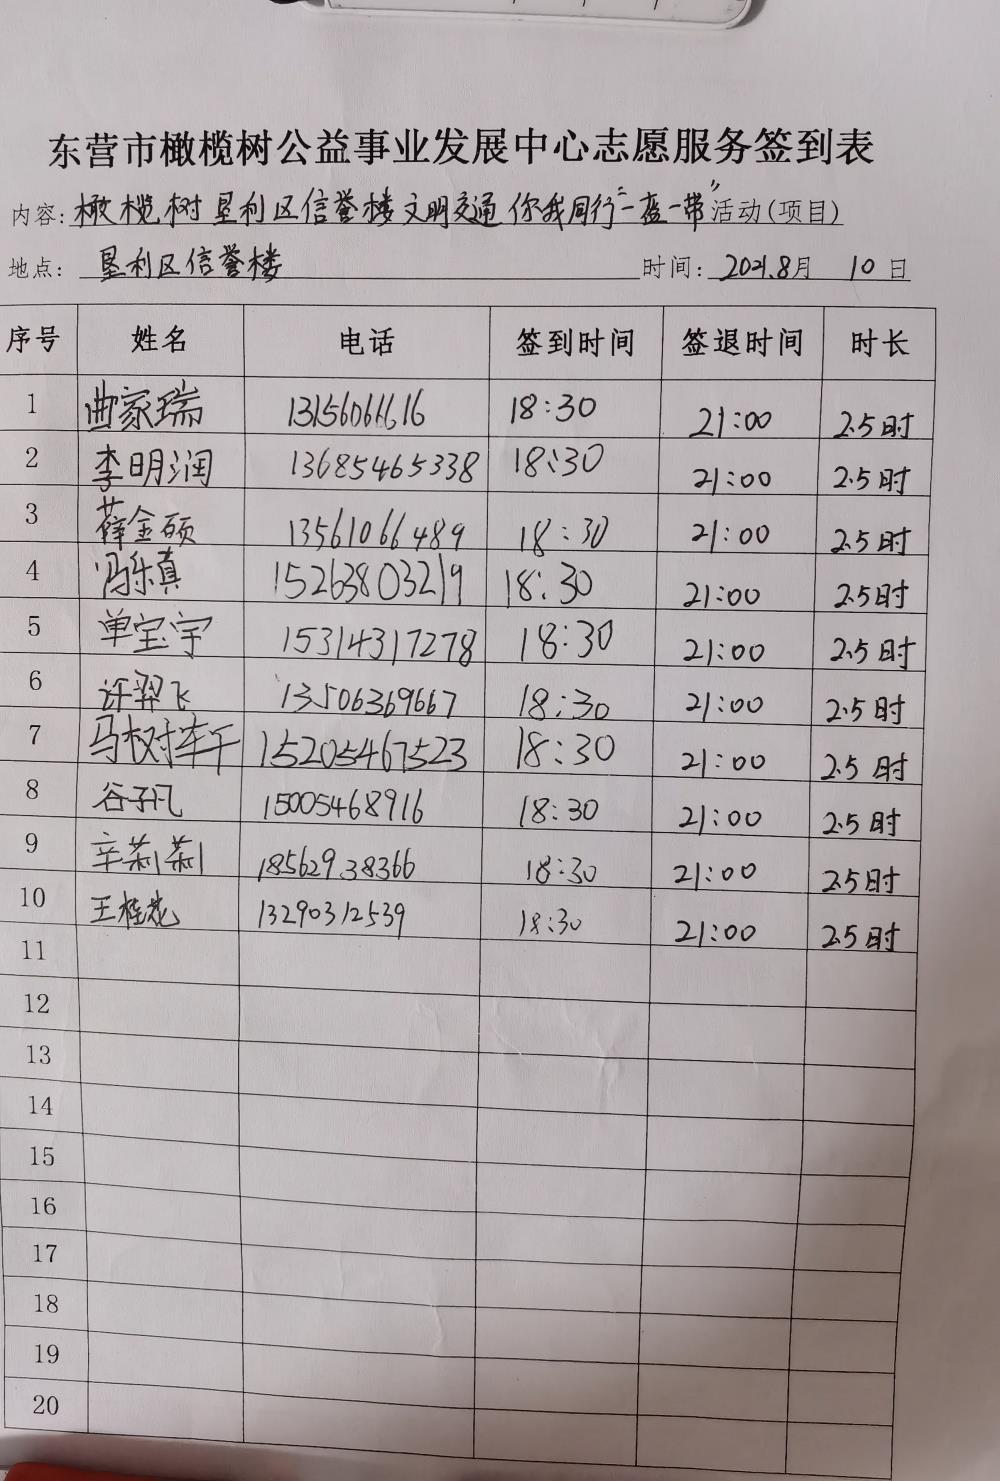 东营市橄榄树公益事业发展中心志愿服务签到表
内容: 橄榄树垦利区信誉楼文明交通你我同行"一盔一带"活动(项目)
地点: 垦利区信誉楼 时间: 2021.8月 10日
序号 姓名 电话 签到时间 签退时间 时长
1 曲家瑞 13156066616 18:30 21:00 2.5时
2 李明润 13685465338 18:30 21:00 2.5时
3 薛金硕 13561066489 18:30 21:00 2.5时
4 冯乐真 15263803219 18:30 21:00 2.5时
5 单宝宇 15314317278 18:30 21:00 2.5时
6 许羿飞 13506369667 18:30 21:00 2.5时
7 15205467523 18:30 21:00 2.5时
8 谷子凡 15005468916 18:30 21:00 2.5时
9 辛莉莉 18562938366 18:30 21:00 2.5时
10 王桂花 13290312539 18:30 21:00 2.5时
11
12
13
14
15
16
17
18
19
20